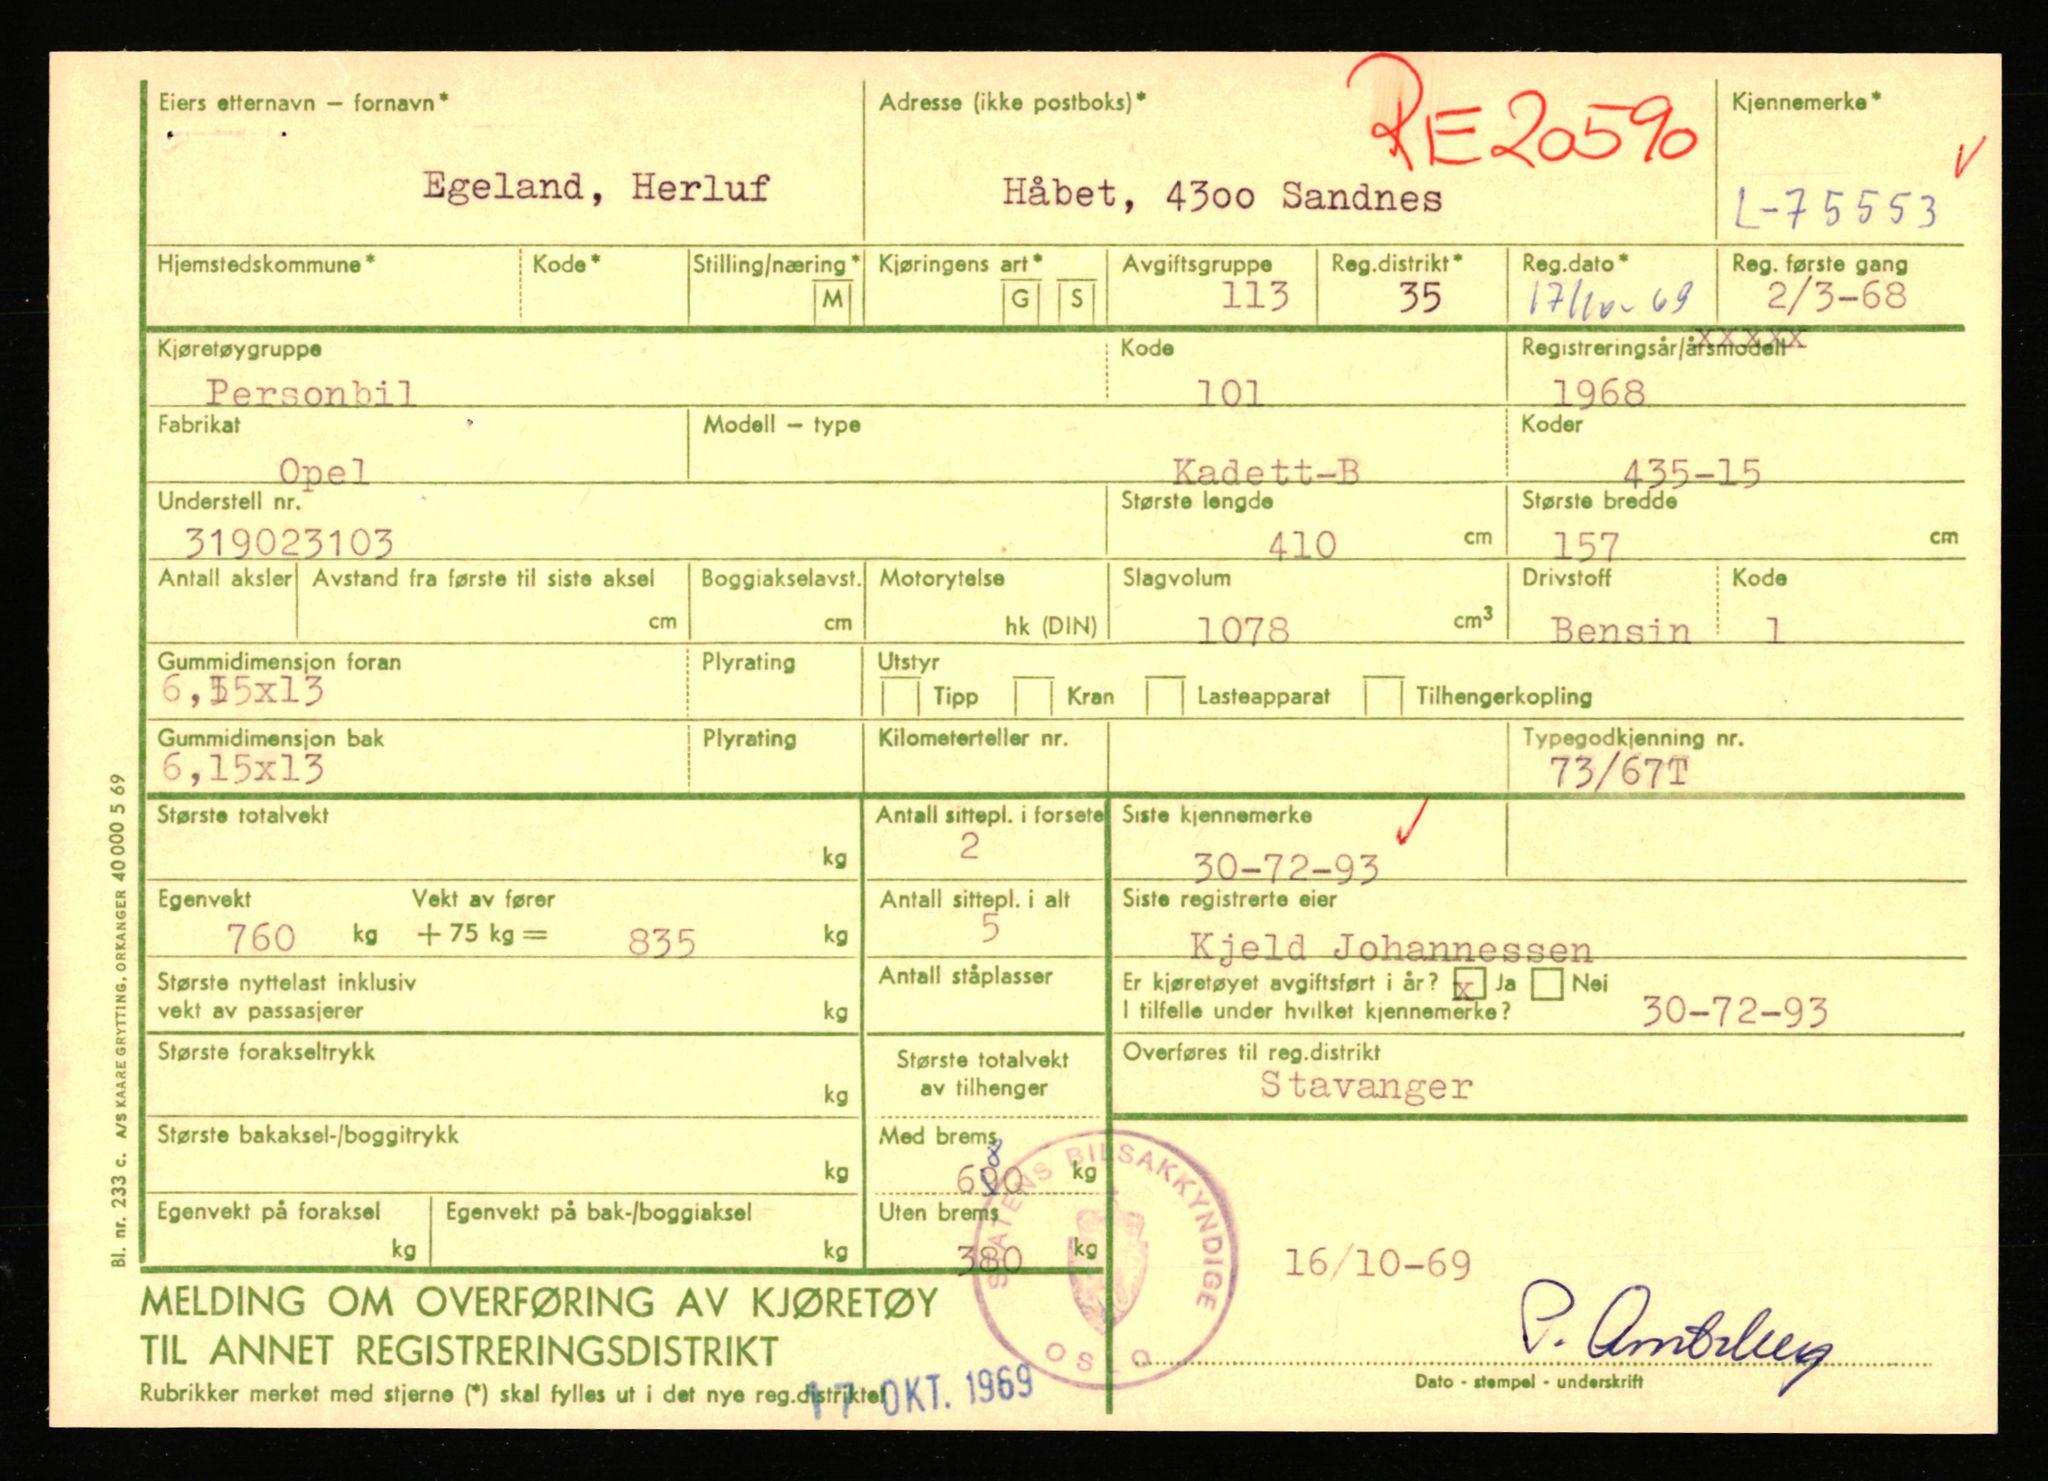 Eiers etternavn – fornavn*
Egeland, Herluf
Adresse (ikke postboks)*
RE20590
Håbet, 4300 Sandnes
Kjennemerke*
L-75553
Hjemstedskommune*
Kode*
Stilling/næring*
M
Kjøringens art*
G S
Avgiftsgruppe
113
Reg.distrikt*
35
Reg.dato*
17/10-69
Reg. første gang
2/3-68
Kjøretøygruppe
Personbil
Kode
101
Registreringsår/årsmodell
xxxxx
1968
Fabrikat
Opel
Modell – type
Kadett-B
Koder
435-15
Understell nr.
319023103
Største lengde
410 cm
Største bredde
157 cm
Antall aksler
Avstand fra første til siste aksel
cm
Boggiakselavst.
cm
Motorytelse
hk (DIN)
Slagvolum
1078 cm³
Drivstoff
Bensin
Kode
1
Gummidimensjon foran
6,15x13
Plyrating
Utstyr
Tipp Kran Lasteapparat Tilhengerkopling
Gummidimensjon bak
6,15x13
Plyrating
Kilometerteller nr.
Typegodkjenning nr.
73/67T
Største totalvekt
kg
Antall sittepl. i forsete
2
Siste kjennemerke
30-72-93
Egenvekt
760 kg
Vekt av fører
+ 75 kg = 835 kg
Antall sittepl. i alt
5
Siste registrerte eier
Kjeld Johannessen
Største nyttelast inklusiv
vekt av passasjerer
kg
Antall ståplasser
Er kjøretøyet avgiftsført i år? x Ja Nei
I tilfelle under hvilket kjennemerke? 30-72-93
Største forakseltrykk
kg
Største totalvekt
av tilhenger
Overføres til reg.distrikt
Stavanger
Største bakaksel-/boggitrykk
kg
Med brems
kg
Egenvekt på foraksel
kg
Egenvekt på bak-/boggiaksel
kg
Uten brems
380 kg
STATENS BILSAKKYNDIGE
OSLO
16/10-69
MELDING OM OVERFØRING AV KJØRETØY
TIL ANNET REGISTRERINGSDISTRIKT
Rubrikker merket med stjerne (*) skal fylles ut i det nye reg.distriktet
17 OKT. 1969
P.
Dato - stempel - underskrift
Bl. nr. 233 c. A/S KAARE GRYTTING, ORKANGER 40 000 5 69